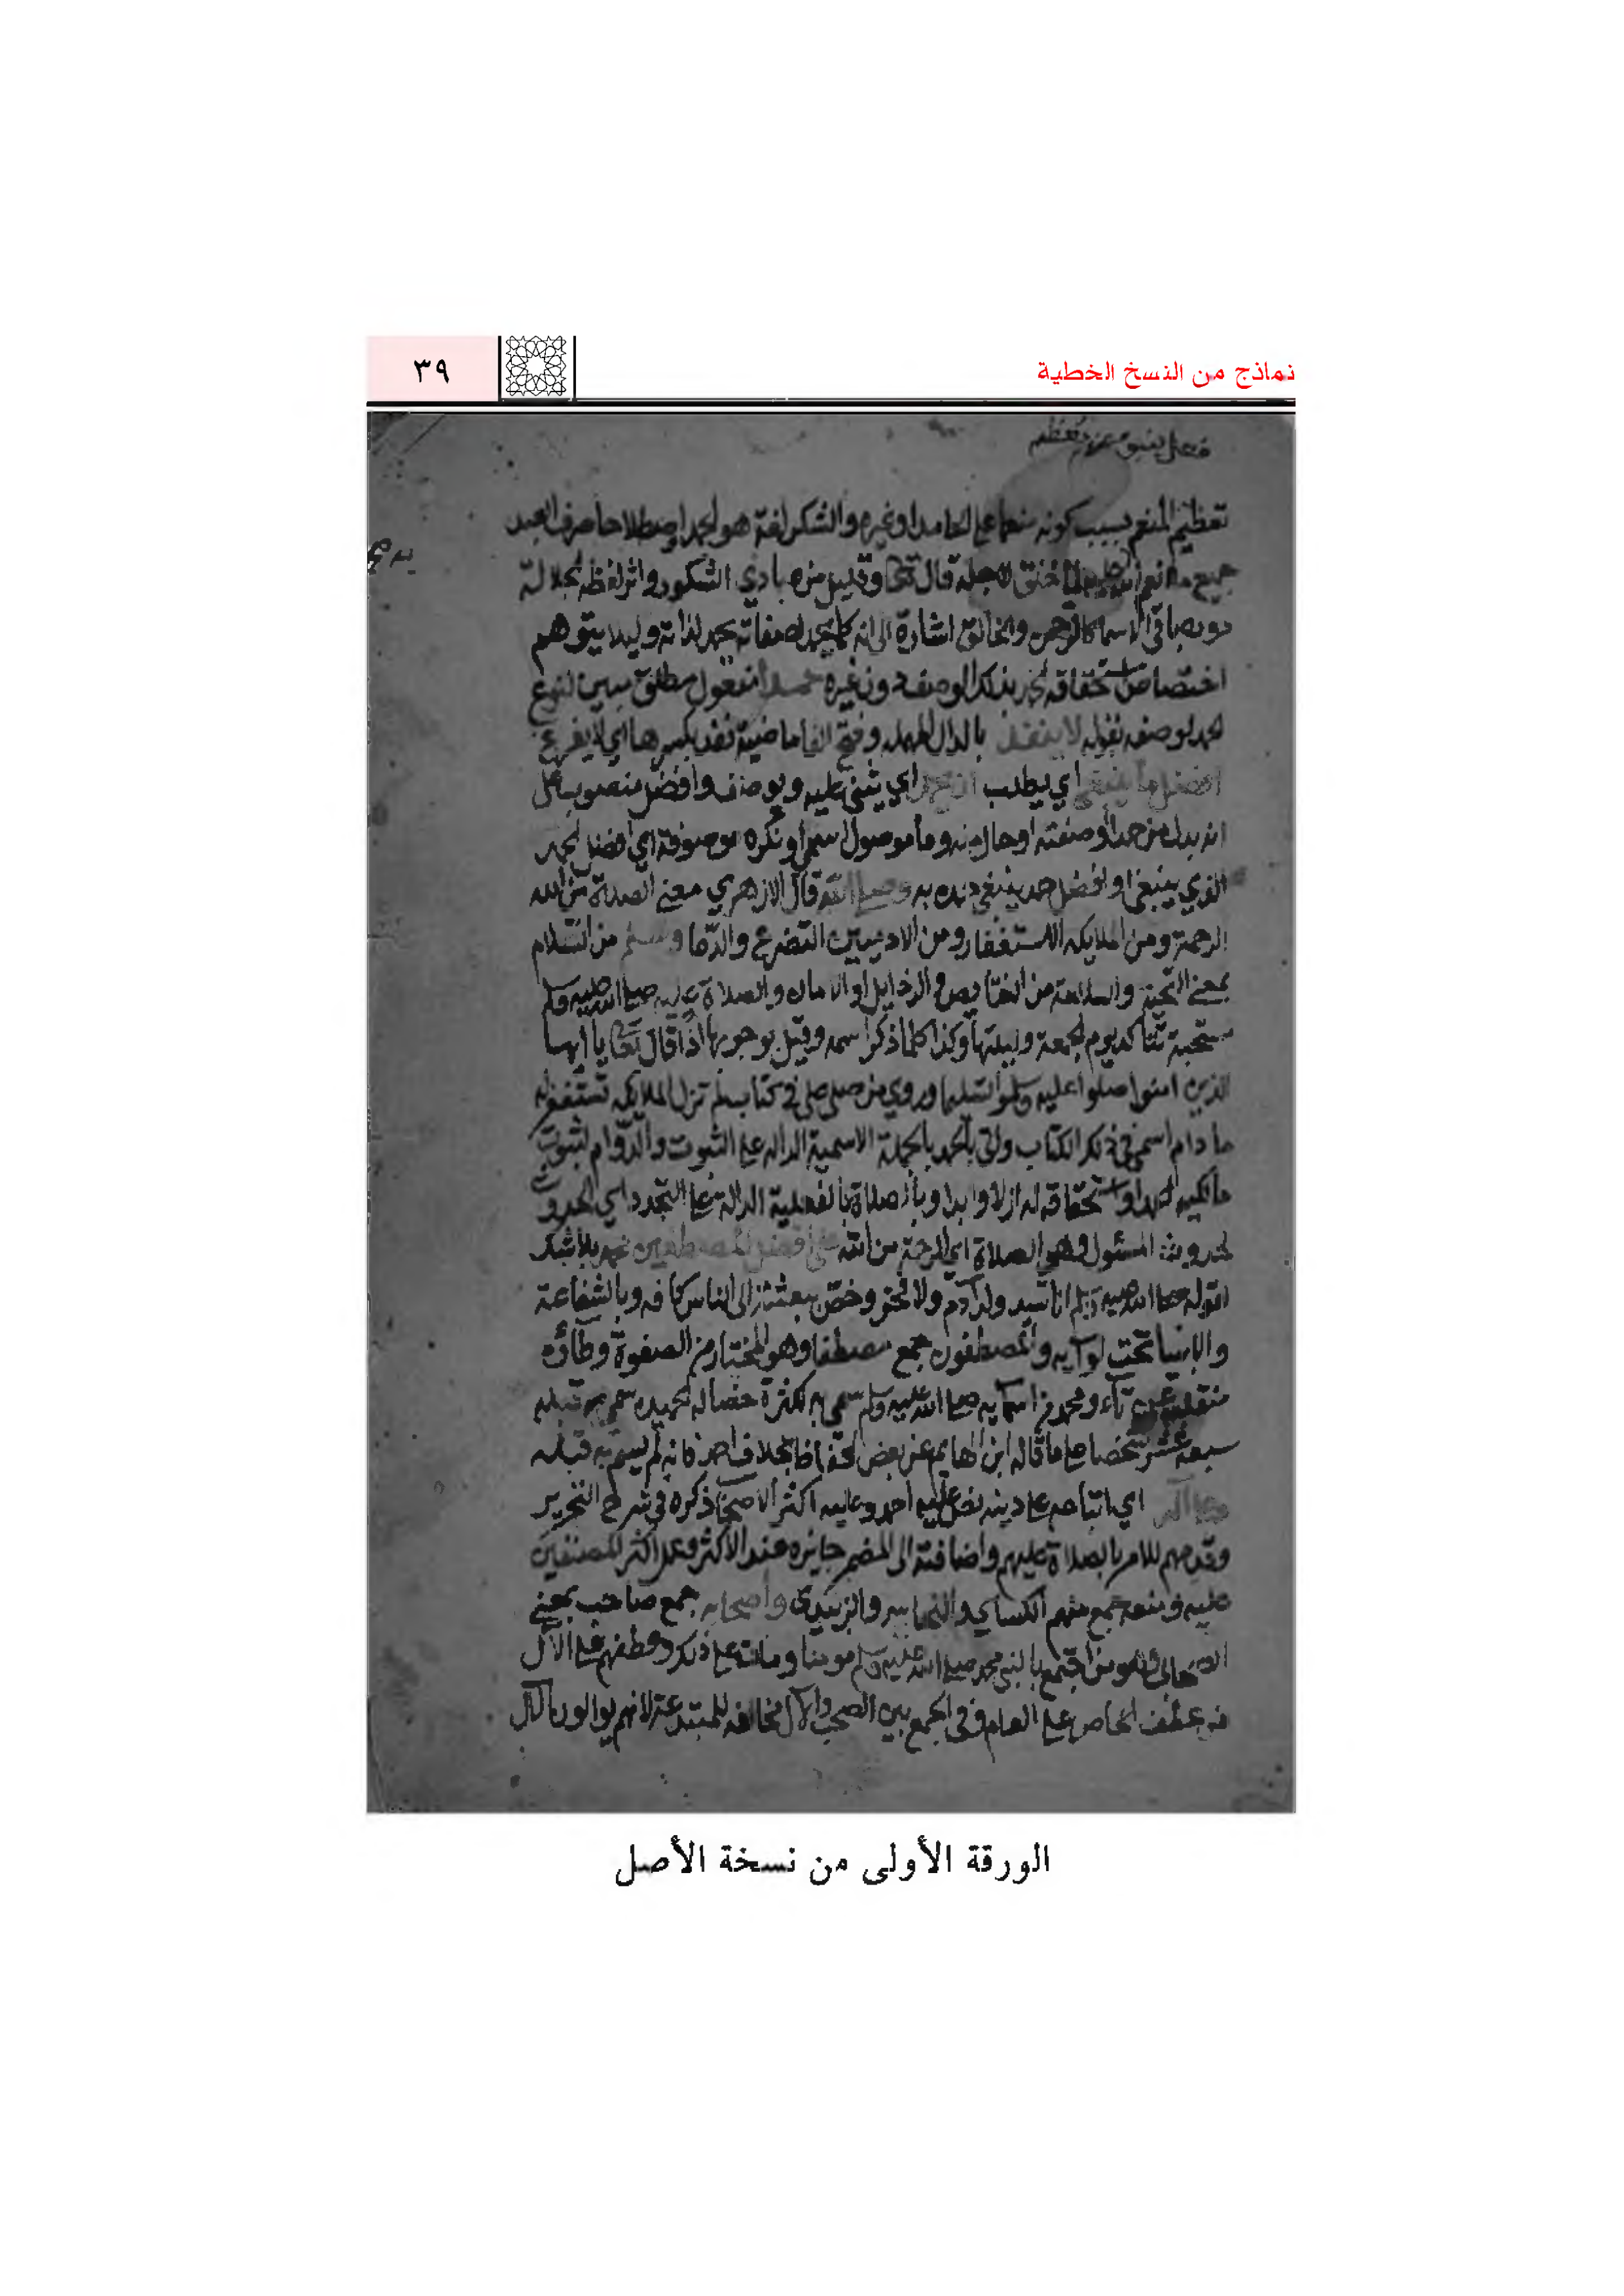 نماذج من النسخ الخطية
٣٩
فعل ينبئ عن تعظيم
تعظيم المنعم بسبب كونه منعما على الحامد او غيره والشكر لغة هو الحمد واصطلاحا صرف العبد
جميع ما انعم الله عليه لما خلق لاجله قال تعالى وقليل من عبادي الشكور واثر لفظ الجلالة
دون باقي الاسما كالرحمن والخالق اشارة الى انه كما يحمد لصفاته يحمد لذاته وليلا يتوهم
اختصاص استحقاقه الحمد بذلك الوصف دون غيره حمدا مفعول مطلق مبين لنوع
الحمد لوصفه بقوله لا ينفد بالدال المهملة وفتح الفا ماضيه نفد بكسرها اي لا يفرغ
افضل ما ينبغي اي يطلب ان يحمد اي يثنى عليه ويوصف وافضل منصوب على
انه بدل من حمدا او صفته او حال منه وما موصول اسمي او نكره موصوفة اي افضل الحمد
الذي ينبغي او افضل حمد ينبغي حمده به وصلى الله قال الازهري معنى الصلاة من الله
الرحمة ومن الملايكة الاستغفار ومن الادميين التضرع والدعا وسلم من السلام
بمعنى التحية والسلامة من النقايص والرذايل او الامان والصلاة عليه صلى الله عليه وسلم
مستحبة تتاكد يوم الجمعة وليلتها وكذا كلما ذكر اسمه وقيل بوجوبها اذا قال تعالى يا ايها
الذين امنوا صلوا عليه وسلموا تسليما وروي من صلى علي في كتاب لم تزل الملايكة تستغفر له
ما دام اسمي في ذلك الكتاب واتى بالحمد بالجملة الاسمية الداله على الثبوت والدوام لثبوت
مالكية الحمد او استحقاقه له ازلا وابدا وبالصلاة بالفعلية الدالة على التجدد اي الحدوث
لحدوث المسئول وهو الصلاة اي الرحمة من الله على افضل المصطفين محمد بلا شك
لقوله صلى الله عليه وسلم انا سيد ولد آدم ولا فخر وخص ببعثته الى الناس كافه وبالشفاعة
والانبيا تحت لوآيه والمصطفون جمع مصطفا وهو المختار من الصفوة وطآؤه
منقلبة عن تآء ومحمد من اسمآيه صلى الله عليه وسلم سمي به لكثرة خصاله الحميده سمي به قبله
سبعة عشر شخصا على ما قاله ابن الهايم عن بعض الحفاظ بخلاف احمد فانه لم يسم به قبله
وعلى آله اي اتباعه على دينه نص عليه احمد وعليه اكثر الاصحاب ذكره في شرح التحرير
وقدمهم للامر بالصلاة عليهم واضافته الى المضمر جايزه عند الاكثر وعمل اكثر المصنفين
عليه ومنعه جمع منهم الكساي والنحاس والزبيدي واصحابه جمع صاحب بمعنى
الصحابي وهو من اجتمع بالنبي محمد صلى الله عليه وسلم مومنا ومات على ذلك وعطفهم على الآل
من عطف الخاص على العام وفي الجمع بين الصحب والآل مخالفه للمبتدعة لانهم يوالون الآل
الورقة الأولى من نسخة الأصل